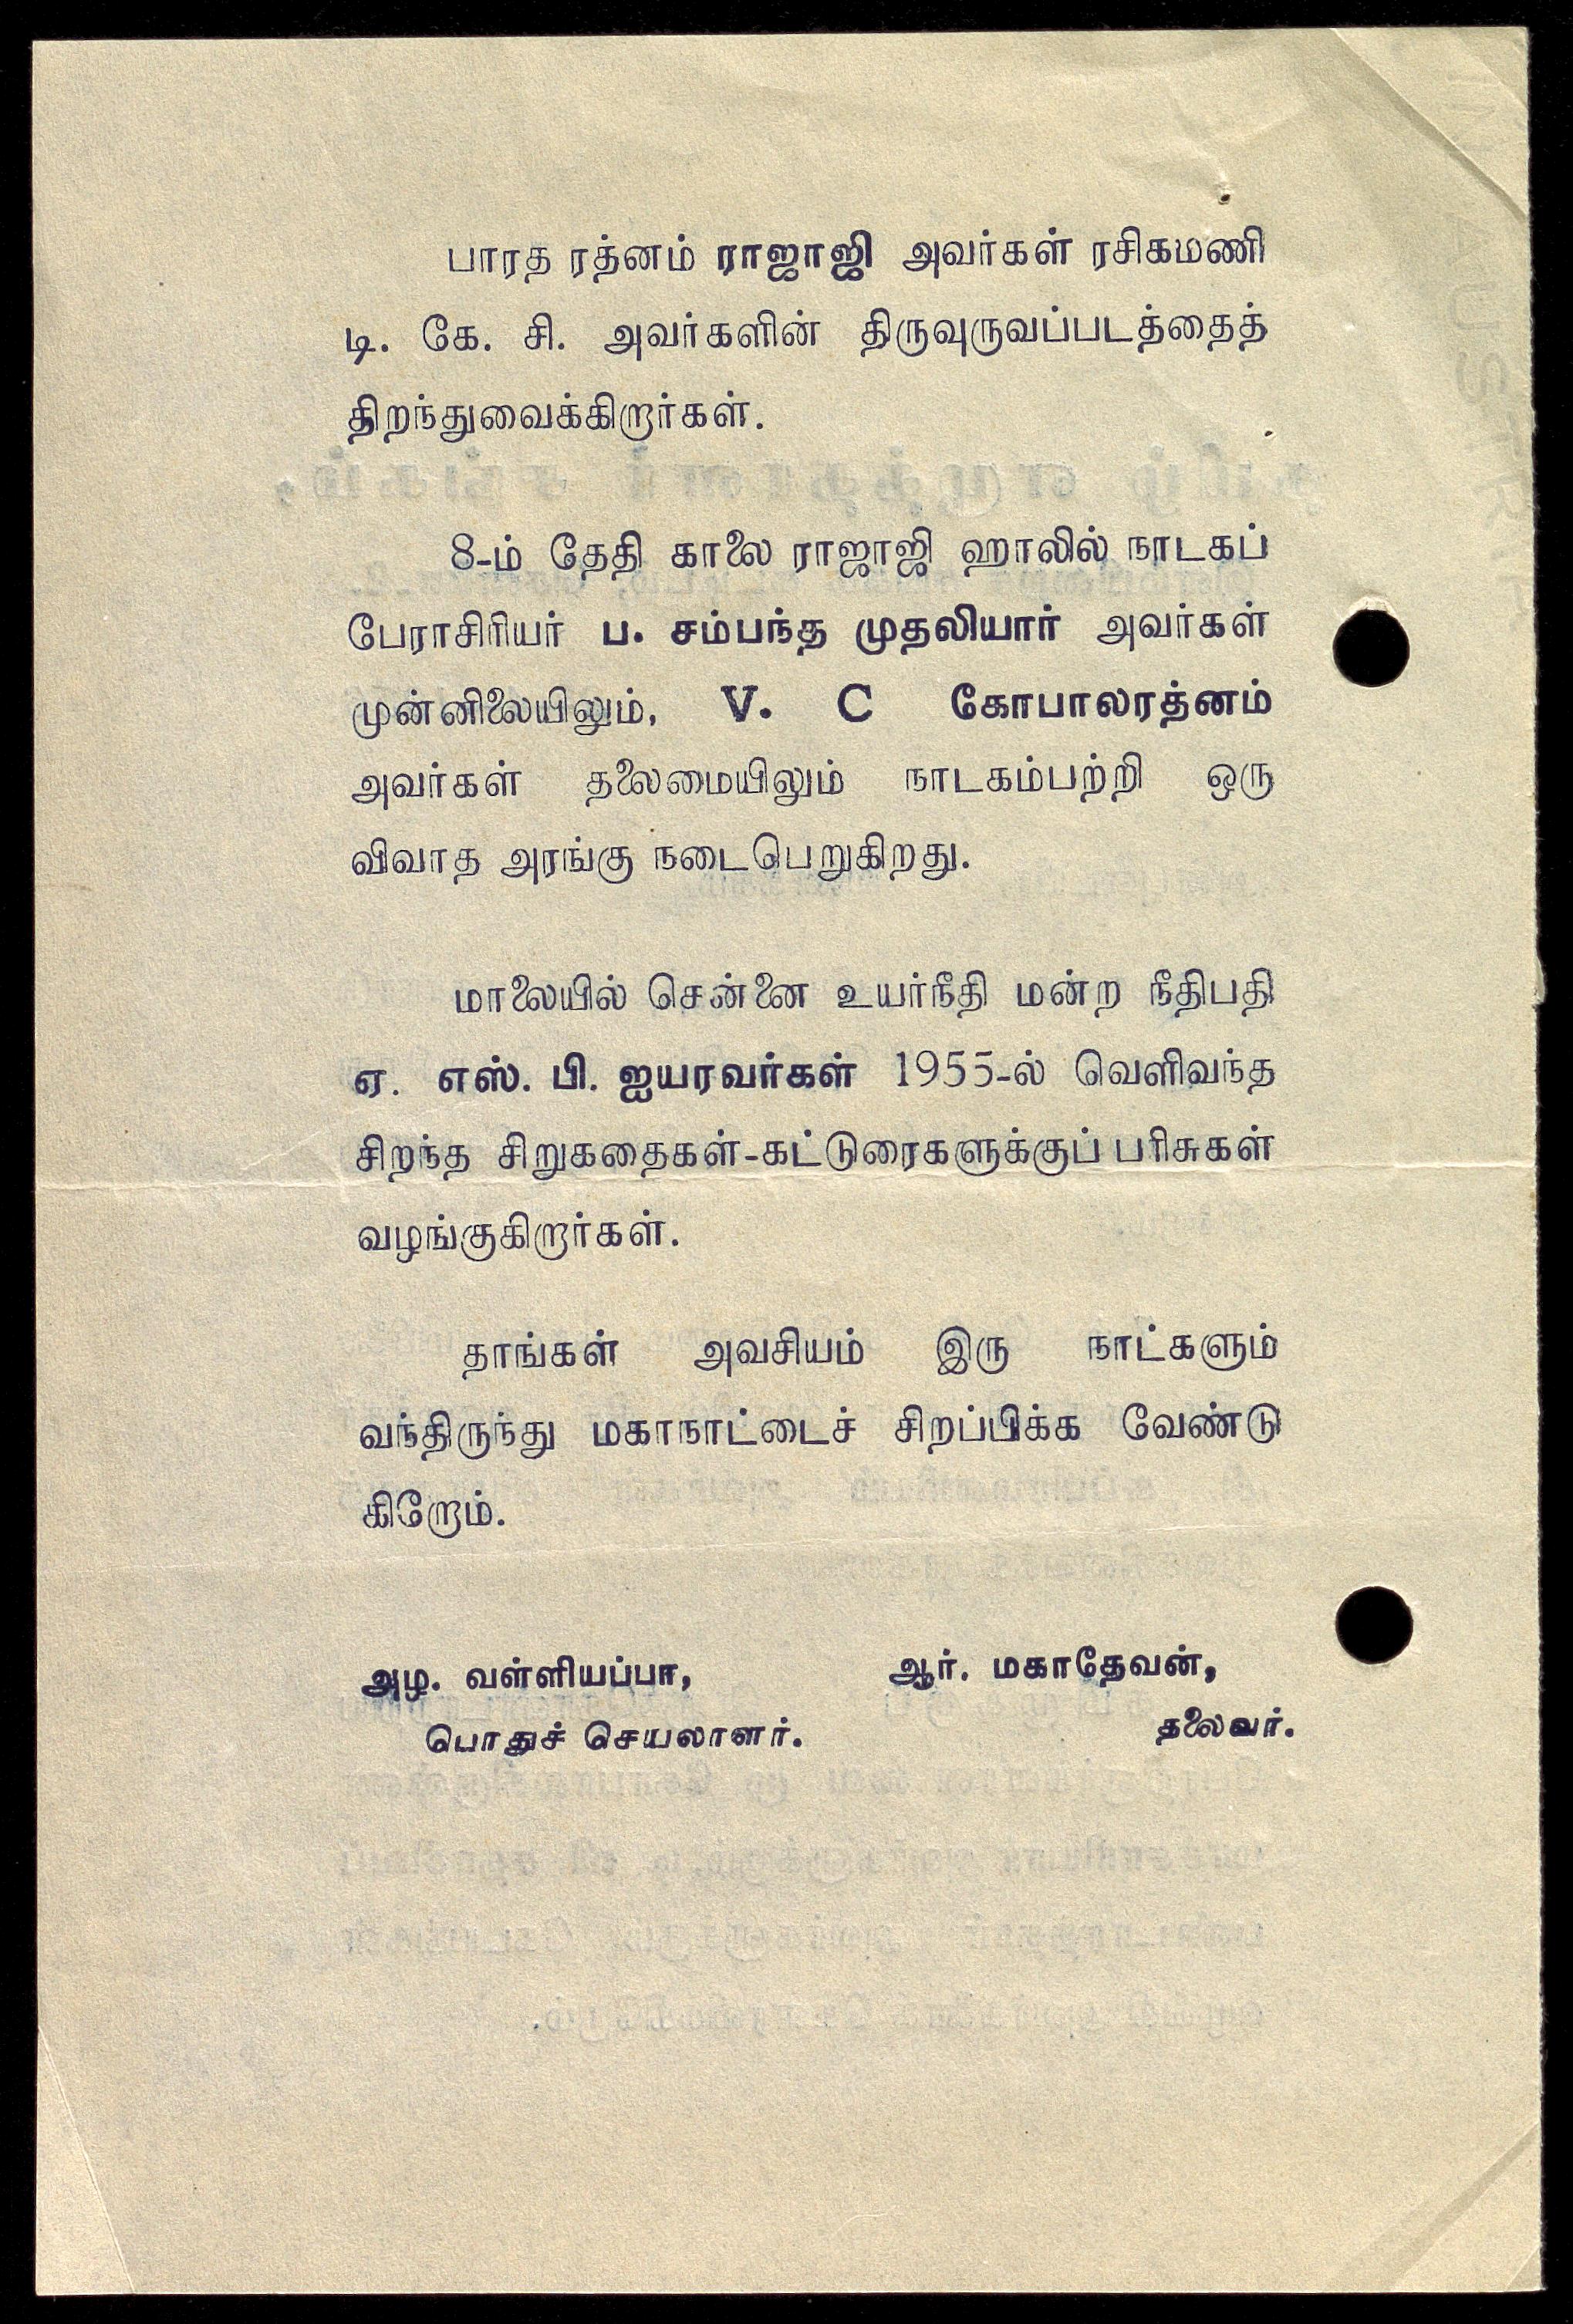 பாரத ரத்னம் ராஜாஜி அவர்கள் ரசிகமணி
டி. கே. சி. அவர்களின் திருவுருவப்படத்தைத்
திறந்துவைக்கிறார்கள்.
8-ம் தேதி காலை ராஜாஜி ஹாலில் நாடகப்
பேராசிரியர் ப. சம்பந்த முதலியார் அவர்கள்
முன்னிலையிலும், V. C கோபாலரத்னம்
அவர்கள் தலைமையிலும் நாடகம்பற்றி ஒரு
விவாத அரங்கு நடைபெறுகிறது.
மாலையில் சென்னை உயர்நீதி மன்ற நீதிபதி
ஏ. எஸ். பி. ஐயரவர்கள் 1955-ல் வெளிவந்த
சிறந்த சிறுகதைகள்-கட்டுரைகளுக்குப் பரிசுகள்
வழங்குகிறார்கள்.
தாங்கள் அவசியம் இரு நாட்களும்
வந்திருந்து மகாநாட்டைச் சிறப்பிக்க வேண்டு
கிறோம்.
அழ. வள்ளியப்பா, ஆர். மகாதேவன்,
பொதுச் செயலாளர். தலைவர்.